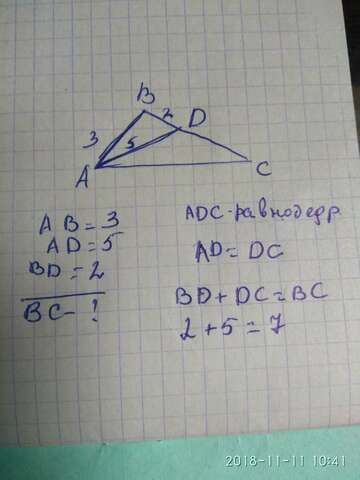 B
2
D
3
5
A
C
AB = 3
AD = 5
BD = 2
BC - ?
ADC - равнобедр
AD = DC
BD + DC = BC
2 + 5 = 7
2018-11-11 10:41